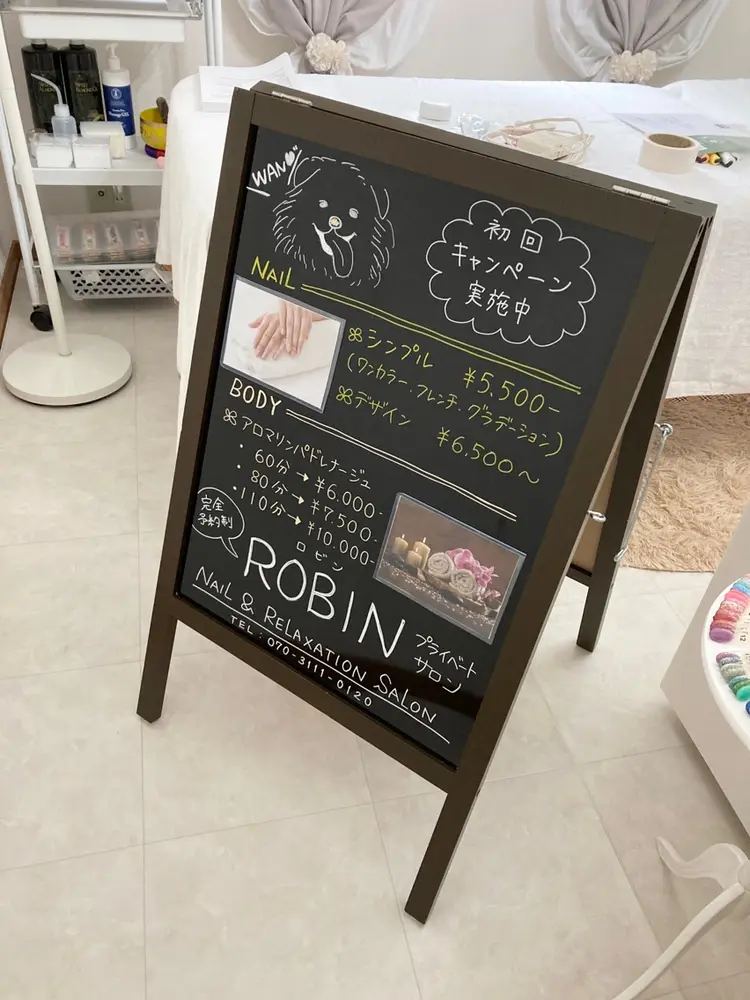 WAN
初回
キャンペーン
実施中
NAIL
シンプル ¥5,500-
(ワンカラー・フレンチ・グラデーション)
デザイン ¥6,500〜
BODY
アロマリンパドレナージュ
・60分→¥6.000-
・80分→¥7.500-
・110分→¥10.000-
完全
予約制
ロビン
ROBIN
プライベート
サロン
NAIL & RELAXATION SALON
TEL:070-3111-0120